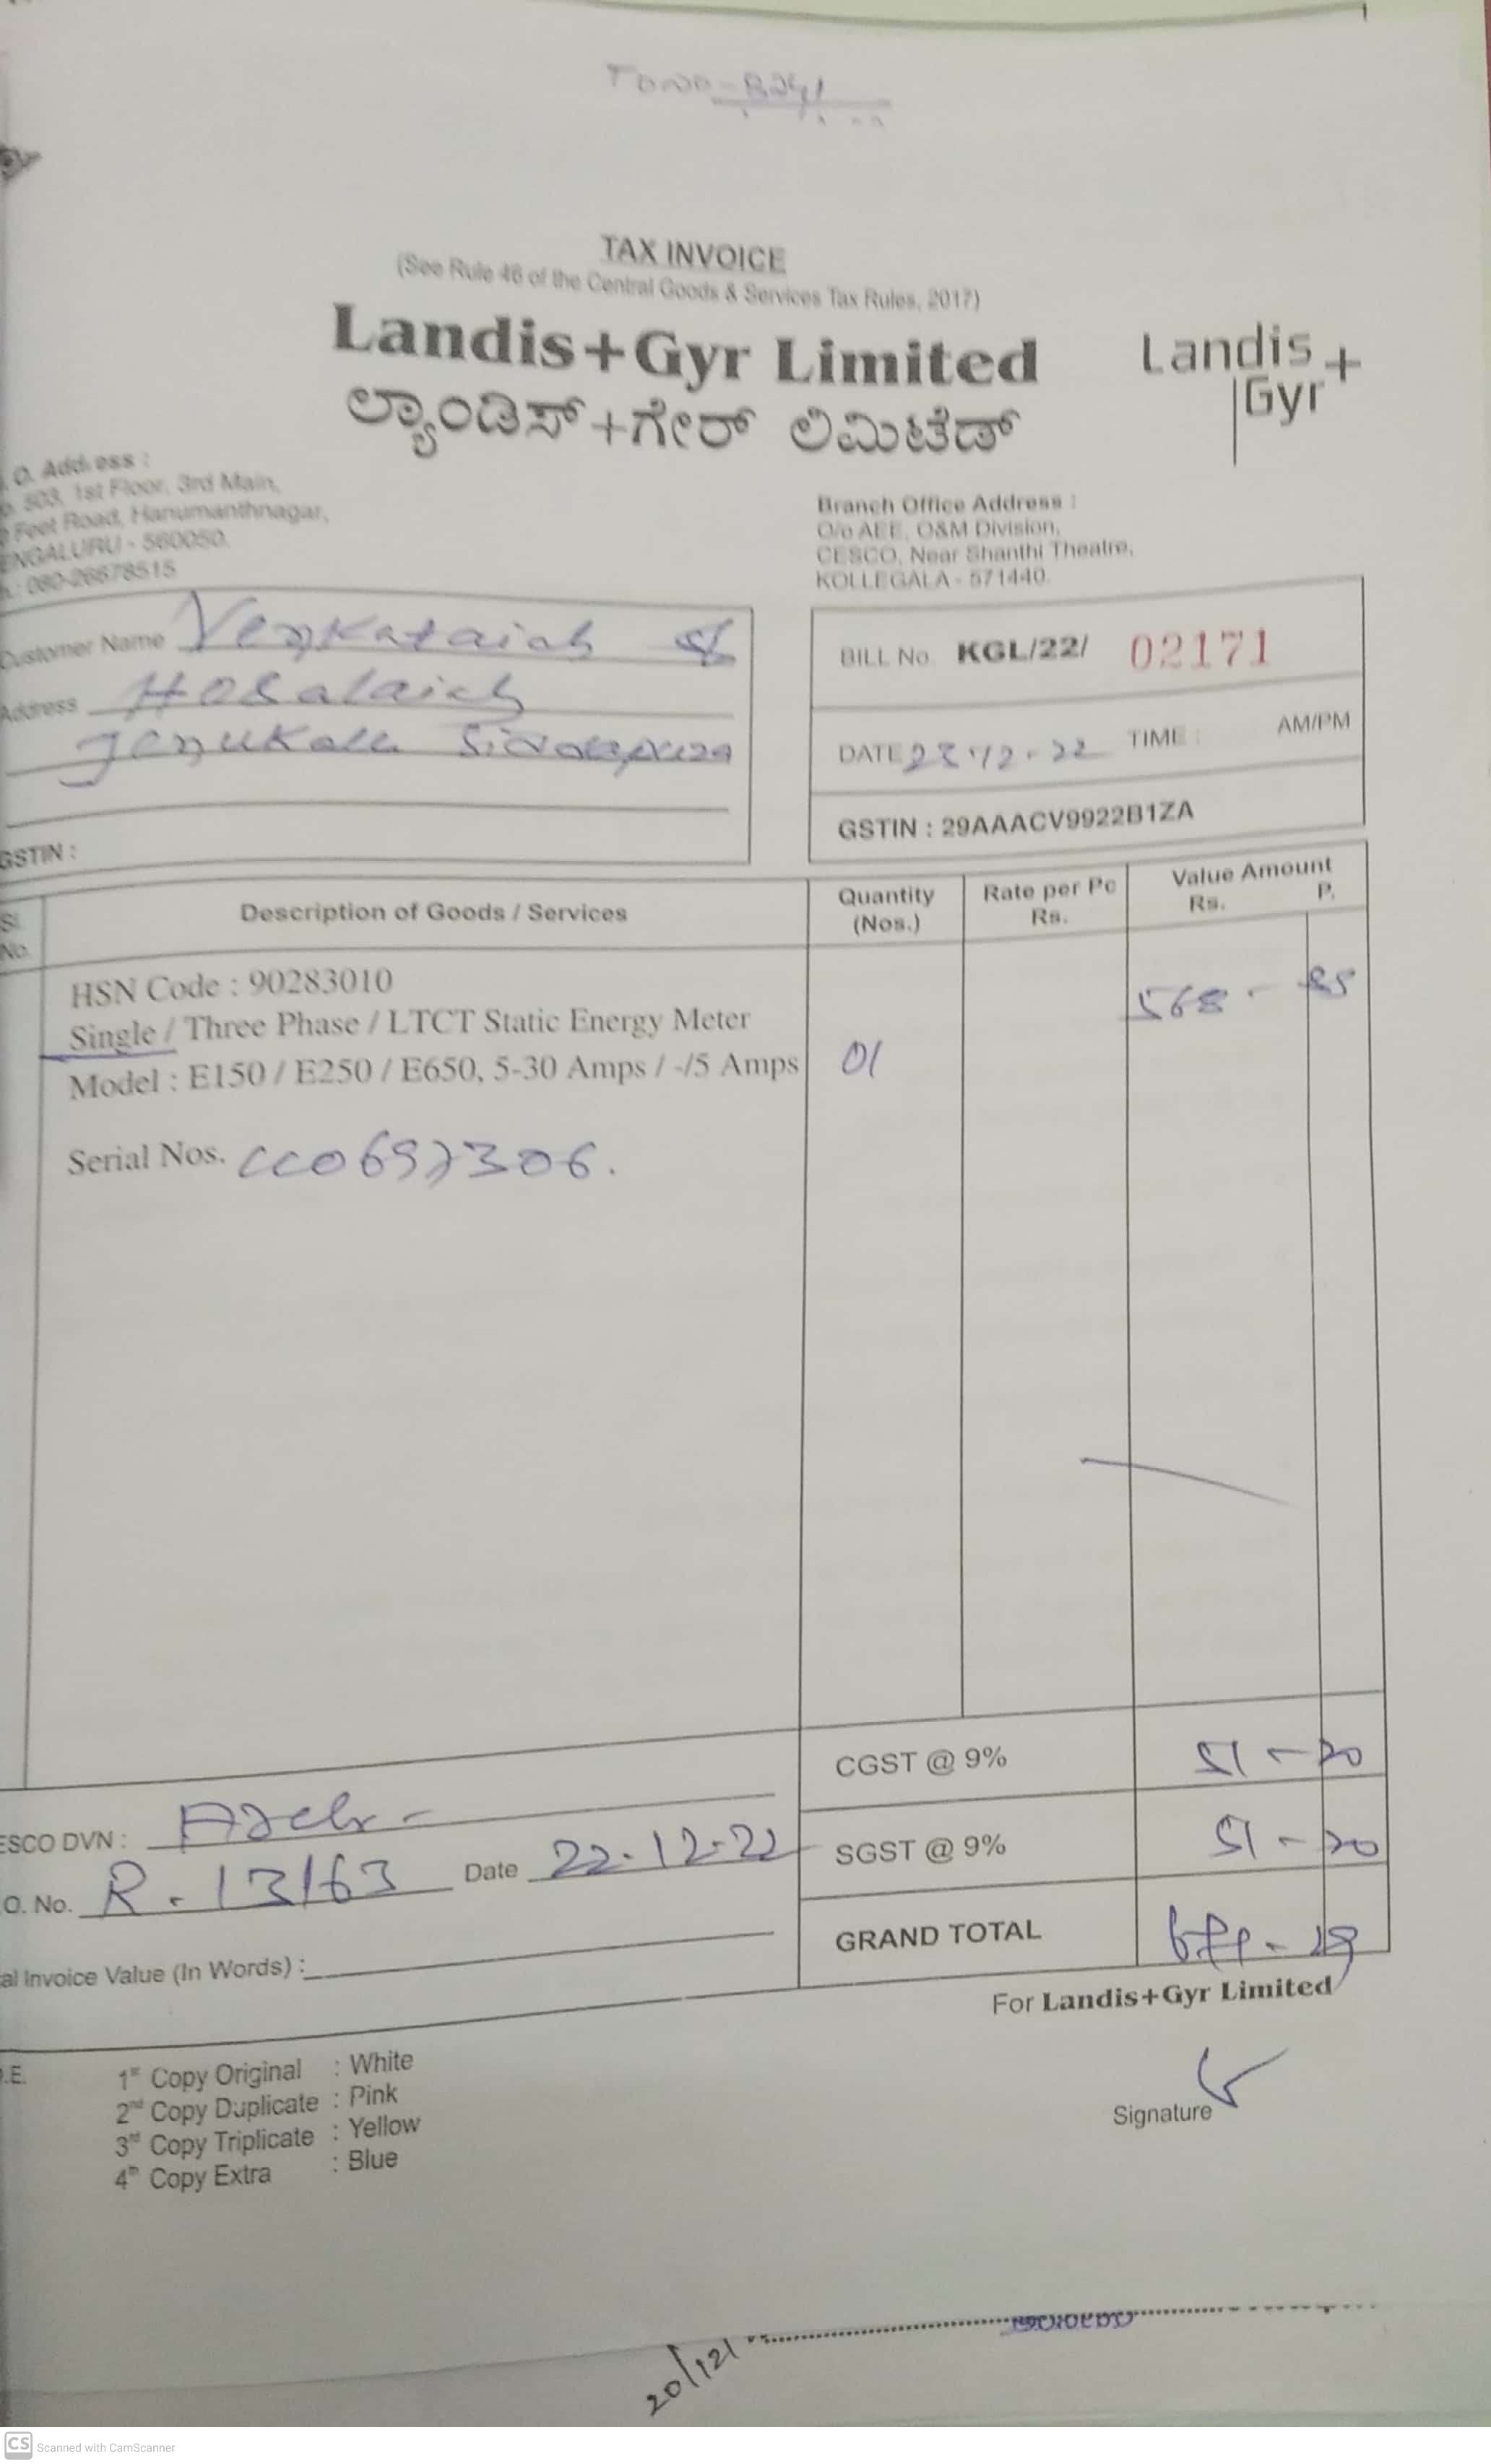 TAX INVOICE
(See Rule 46 of the Central Goods & Services Tax Rules, 2017)
Landis+Gyr Limited
ಲ್ಯಾಂಡಿಸ್+ಗೇರ್ ಲಿಮಿಟೆಡ್
Landis+
Gyr
. O. Address :
503, 1st Floor, 3rd Main,
Feet Road, Hanumanthnagar,
ENGALURU - 560050.
: 080-26678515
Branch Office Address :
O/o AEE, O&M Division,
CESCO, Near Shanthi Theatre,
KOLLEGALA - 571440.
Customer Name Venkataiah
Address
GSTIN :
BILL No. KGL/22/ 02171
DATE TIME : AM/PM
GSTIN : 29AAACV9922B1ZA
Sl. No. Description of Goods / Services Quantity (Nos.) Rate per Pc Rs. Value Amount Rs. P.
HSN Code : 90283010
568 - 85
Single / Three Phase / LTCT Static Energy Meter
Model : E150 / E250 / E650, 5-30 Amps / -/5 Amps 01
Serial Nos. CC0697306.
CGST @ 9% 51 - 20
SGST @ 9% 51 - 20
GRAND TOTAL
ESCO DVN :
O. No. R. 13163 Date 22.12.22
al Invoice Value (In Words) :
For Landis+Gyr Limited
Signature
.E.
1st Copy Original : White
2nd Copy Duplicate : Pink
3rd Copy Triplicate : Yellow
4th Copy Extra : Blue
20/12/
CS Scanned with CamScanner